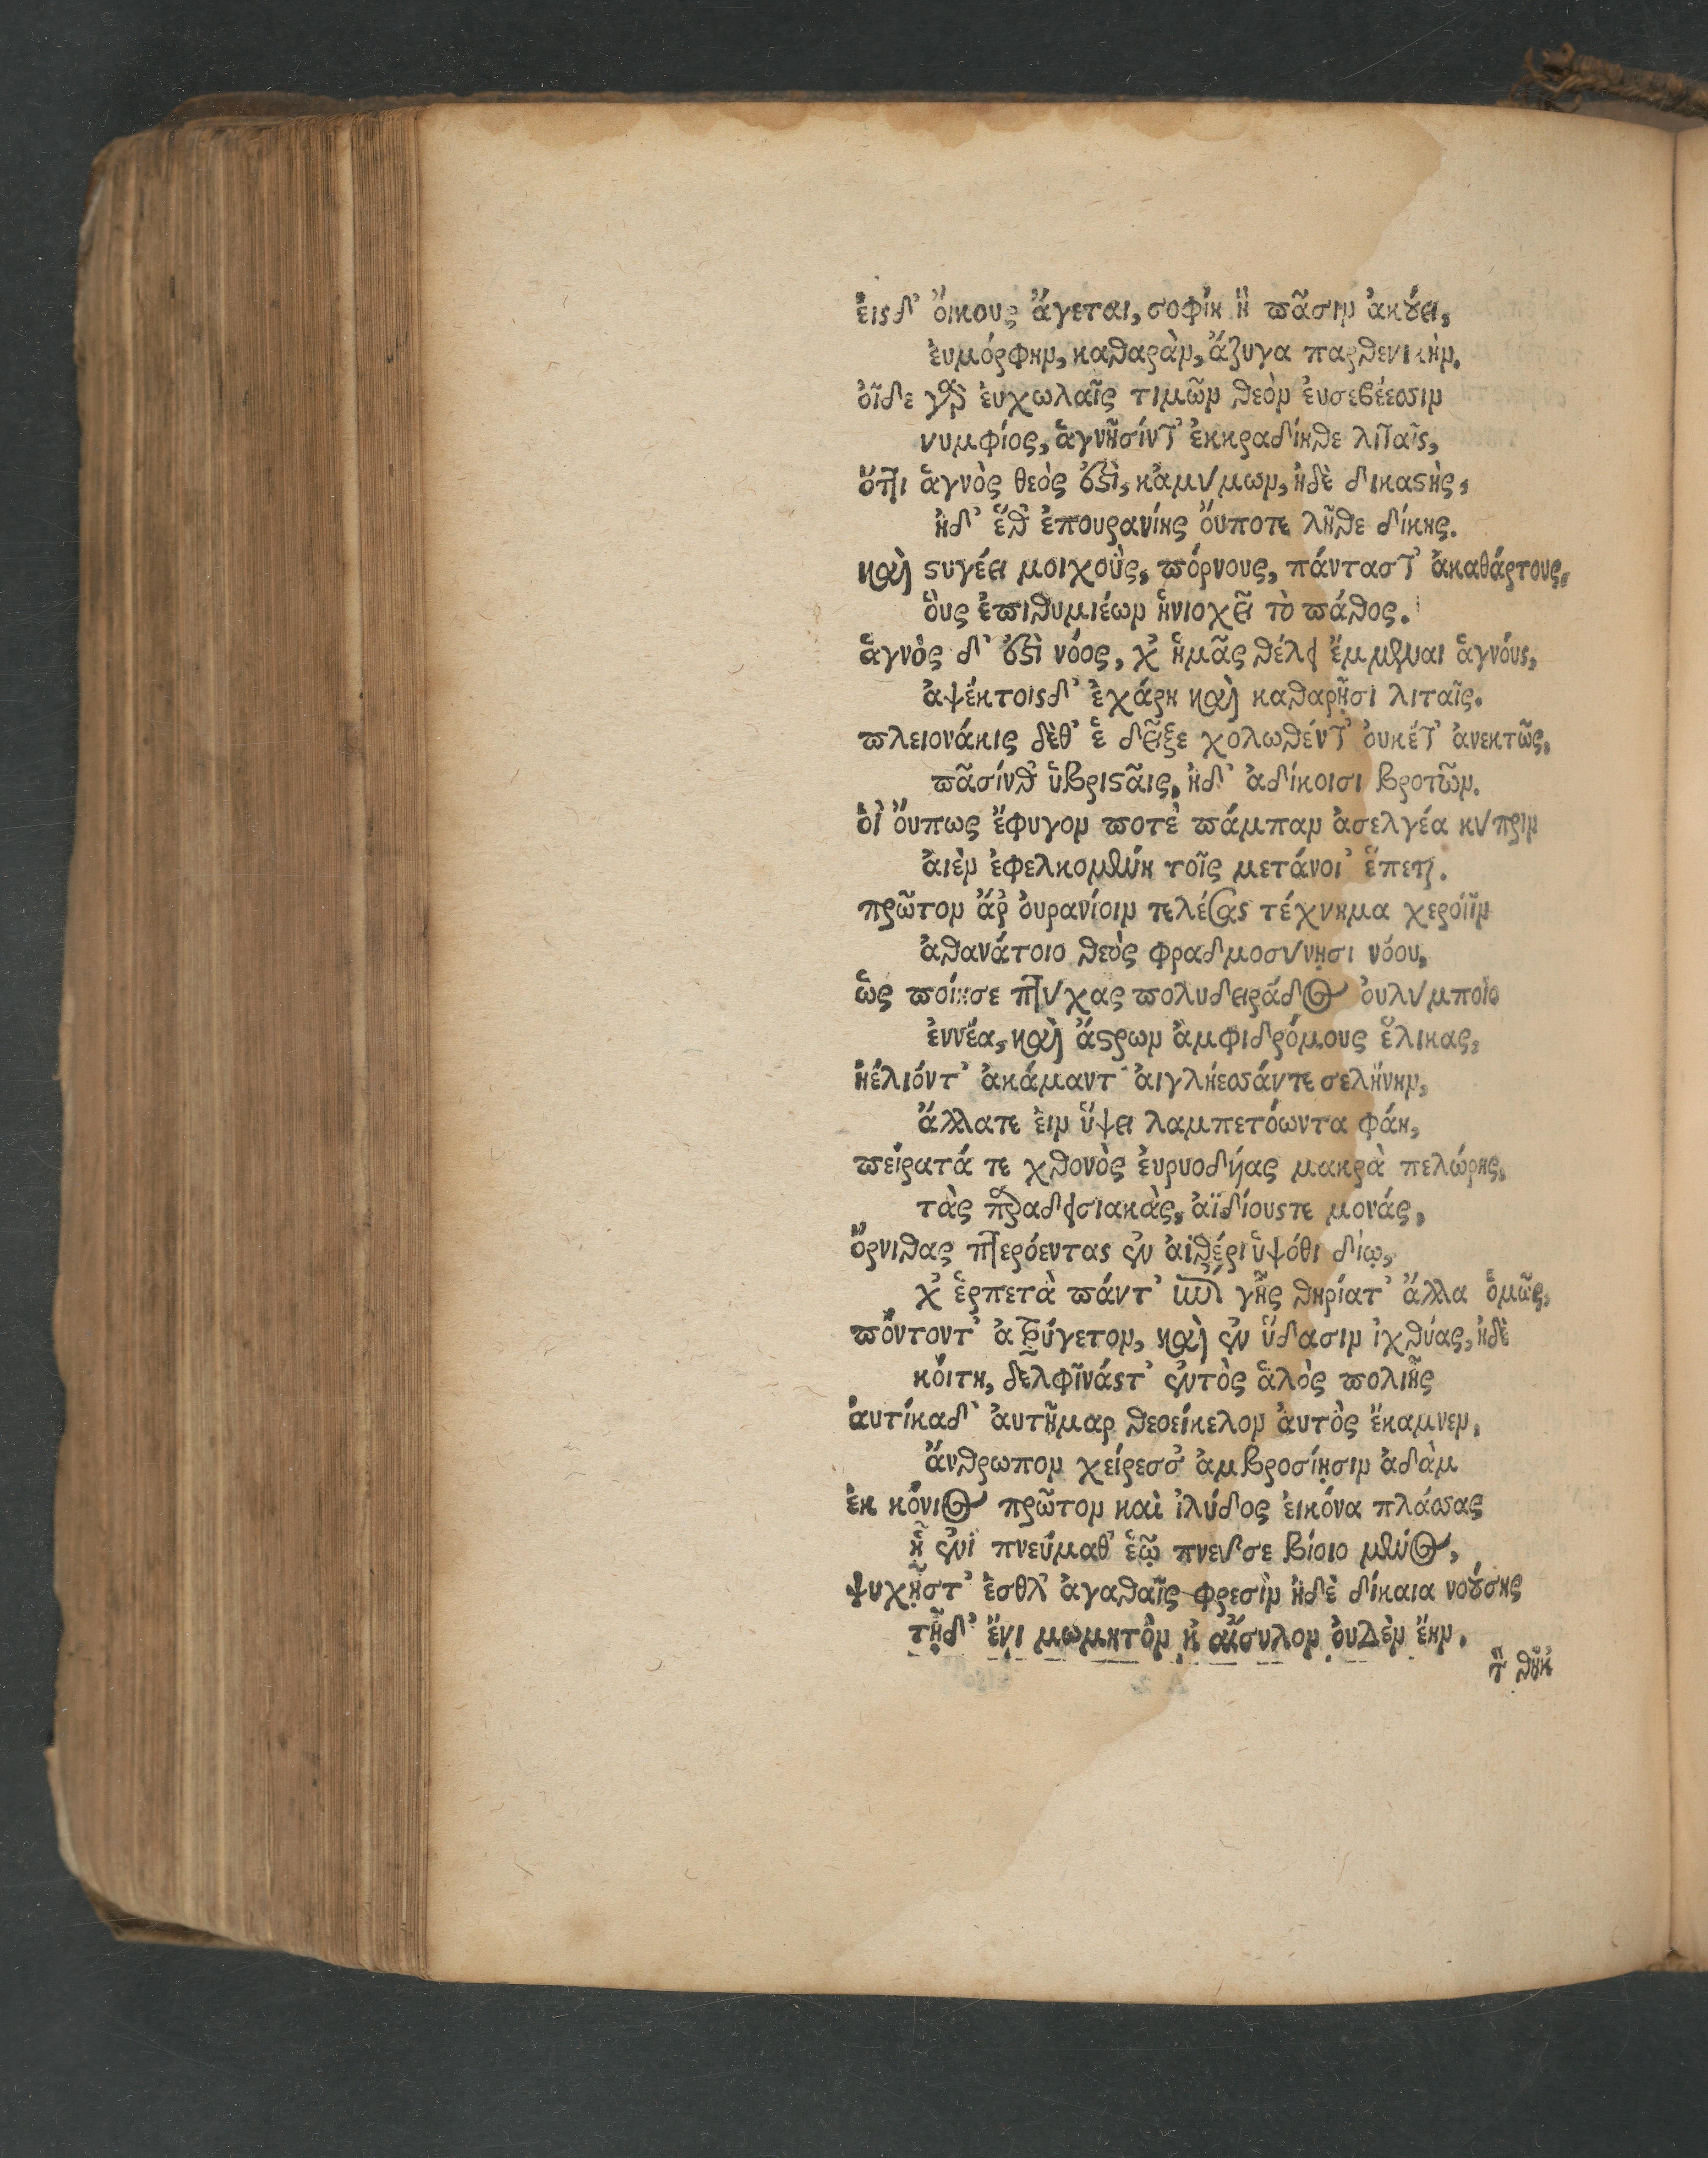 ἐις δ' ὄικους ἄγεται, σοφίη ἣ πᾶσιν ἀκούει,
ἐυμόρφην, καθαρὰν, ἄζυγα παρθενικήν.
ὀῖδε γὰρ ἐυχωλαῖς τιμῶν θεὸν ἐυσεβέεσσιν
νυμφίος, ἁγνῆσίντ' ἐκκραδίηθε λιταῖς,
ὅττι ἁγνὸς θεὸς ἐστὶ, κἀμύμων, ἠδὲ δικαστὴς,
ἠδ' ἕθ' ἐπουρανίης ὄυποτε λῆθε δίκης.
καὶ στυγέει μοιχοὺς, πόρνους, πάνταστ' ἀκαθάρτους,
ὃυς ἐπιθυμιέων ἡνιοχεῖ τὸ πάθος.
ἁγνὸς δ' ἐστὶ νόος, χ' ἡμᾶς θέλει ἔμμεναι ἁγνόυς,
ἀψέκτοις δ' ἐχάρη καὶ καθαρῇσι λιταῖς.
πλειονάκις δὲθ' ἑ δεῖξε χολωθέντ' ὀυκέτ' ἀνεκτῶς,
πᾶσίνθ' ὑβρισταῖς, ἠδ' ἀδίκοισι βροτῶν.
ὁὶ ὄυπως ἔφυγον ποτὲ πάμπαν ἀσελγέα κύπριν
ἀιὲν ἐφελκομένη τοῖς μετάνοι' ἕπεται.
πρῶτον ἄρ' ὀυρανίοιν τελέσας τέχνημα χερόιϊν
ἀθανάτοιο θεὸς φραδμοσύνῃσι νόου,
ὣς ποίησε πτύχας πολυδειράδος ὀυλύμποιο
ἐννέα, καὶ ἄστρων ἀμφιδρόμους ἕλικας,
ἠέλιόντ' ἀκάμαντ' ἀιγλήεσσάντε σελήνην,
ἄλλατε ἐιν ὕψει λαμπετόωντα φάη,
πείρατά τε χθονὸς ἐυρυοδήας μακρὰ πελώρης,
τὰς παραδεισιακὰς, ἀϊδίουστε μονάς,
ὄρνιθας πτερόεντας ἐν ἀιθέρι ὑψόθι δίῳ,
χ' ἑρπετὰ πάντ' ἐπὶ γῆς θηρίατ' ἄλλα ὁμῶς,
πόντοντ' ἀτρύγετον, καὶ ἐν ὕδασιν ἰχθύας, ἠδὲ
κόιτη, δελφῖνάστ' ἐντὸς ἁλὸς πολιῆς
ἀυτίκαδ' ἀυτῆμαρ θεοείκελον ἀυτὸς ἔκαμνεν,
ἄνθρωπον χείρεσσ' ἀμβροσίῃσιν ἀδὰμ
ἐκ κόνιος πρῶτον καὶ ἰλύδος ἐικόνα πλάσσας
ᾗ ἐνὶ πνεύμαθ' ἑῷ πνεῦσε βίοιο μένος,
ψυχῇστ' ἐσθλ' ἀγαθαῖς φρεσὶν ἠδὲ δίκαια νούσης
τῇδ' ἔνι μωμητὸν ἠ' ἀίσυλον ὀυδὲν ἔην.